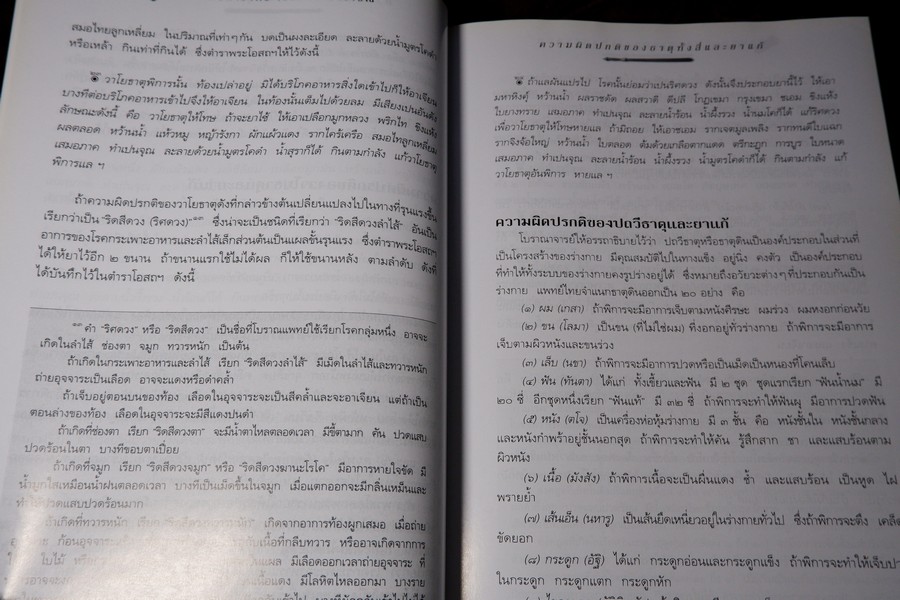 สมอไทยลูกเหลี่ยม ในปริมาณที่เท่าๆกัน บดเป็นผงละเอียด ละลายด้วยน้ำมูตรโคดำ
หรือเหล้า กินเท่าที่กินได้ ซึ่งตำราพระโอสถฯให้ไว้ดังนี้
วาโยธาตุพิการนั้น ท้องเปล่าอยู่ มิได้บริโภคอาหารสิ่งใดเข้าไปก็ให้อาเจียน
บางทีต่อบริโภคอาหารเข้าไปจึงให้อาเจียน ในท้องนั้นเต็มไปด้วยลม มีเสียงเปนอันดัง
ลักษณะดังนี้ คือ วาโยธาตุให้โทษ ถ้าจะยาใช้ ให้เอาเปลือกมูกหลวง พริกไท ขิงแห้ง
ผลตลอด หว้านน้ำ แห้วหมู หญ้ารังกา ผักแผ้วแดง รากไคร้เครือ สมอไทยลูกเหลี่ยม
เสมอภาค ทำเปนจุณ ละลายด้วยน้ำมูตรโคดำ น้ำสุราก็ได้ กินตามกำลัง แก้วาโยธาตุ
พิการแล ฯ
ถ้าความผิดปรกติของวาโยธาตุดังที่กล่าวข้างต้นเปลี่ยนแปลงไปในทางที่รุนแรงขึ้น
เรียกว่าเป็น "ริดสีดวง (ริศดวง)"๑๓ ซึ่งน่าจะเป็นชนิดที่เรียกว่า "ริดสีดวงลำไส้" อันเป็น
อาการของโรคกระเพาะอาหารและลำไส้เล็กส่วนต้นเป็นแผลขั้นรุนแรง ซึ่งตำราพระโอสถฯ
ได้ให้ยาไว้อีก ๒ ขนาน ถ้าขนานแรกใช้ไม่ได้ผล ก็ให้ใช้ขนานหลัง ตามลำดับ ดังที่
ได้บันทึกไว้ในตำราโอสถฯ ดังนี้
๑๓ คำ "ริศดวง" หรือ "ริดสีดวง" เป็นชื่อที่โบราณแพทย์ใช้เรียกโรคกลุ่มหนึ่ง อาจจะ
เกิดในลำไส้ ช่องตา จมูก ทวารหนัก เป็นต้น
ถ้าเกิดในกระเพาะอาหารและลำไส้ เรียก "ริดสีดวงลำไส้" มีเม็ดในลำไส้และทวารหนัก
ถ่ายอุจจาระเป็นเลือด อาจจะแดงหรือดำคล้ำ
ถ้าเจ็บอยู่ตอนบนของท้อง เลือดในอุจจาระจะเป็นสีคล้ำและจะอาเจียน แต่ถ้าเป็น
ตอนล่างของท้อง เลือดในอุจจาระจะมีสีแดงปนดำ
ถ้าเกิดที่ช่องตา เรียก "ริดสีดวงตา" จะมีน้ำตาไหลตลอดเวลา มีขี้ตามาก คัน ปวดแสบ
ปวดร้อนในตา บางทีขอบตาเปื่อย
ถ้าเกิดที่จมูก เรียก "ริดสีดวงจมูก" หรือ "ริดสีดวงฆานะโรโค" มีอาการหายใจขัด มี
น้ำมูกใสเหมือนน้ำฝนตลอดเวลา บางทีเป็นเม็ดขึ้นในจมูก เมื่อแตกออกจะมีกลิ่นเหม็นและ
ปวดแสบปวดร้อนมาก
ถ้าเกิดที่ทวารหนัก เรียก เกิดจากอาการท้องผูกเสมอ เมื่อถ่าย
ก้อนอุจจาระ เนื้อที่กลีบทวาร หรืออาจเกิดจากการ
ใบไม้ มีเลือดออกเวลาถ่ายอุจจาระ ที่
แดง มีโลหิตไหลออกมา บางราย
ความผิดปกติของธาตุทั้งสี่และยาแก้
ถ้าแลผันแปรไป โรคนั้นย่อมว่าเปนริศดวง ดังนั้นจึงประกอบยานี้ไว้ ให้เอา
มหาหิงคุ์ หว้านน้ำ ผลราชดัด ผลสวาดิ ดีปลี โกฎเขมา กรุงเขมา ชเอม ขิงแห้ง
ใบยางทราย เสมอภาค ทำเปนจุณ ละลายน้ำร้อน น้ำผึ้งรวง น้ำนมโคก็ได้ แก้ริศดวง
เพื่อวาโยธาตุให้โทษหายแล ถ้ามิถอย ให้เอาชเอม รากเจตมูลเพลิง รากทนดีใบแฉก
รากจิงจ้อใหญ่ หว้านน้ำ ใบตลอด ต้มด้วยเกลือตากแดด ตรีกะฏุก การบูร ใบหนาด
เสมอภาค ทำเปนจุณ ละลายน้ำร้อน น้ำผึ้งรวง น้ำมูตรโคดำก็ได้ กินตามกำลัง แก้
วาโยธาตุอันพิการ หายแล ฯ
ความผิดปรกติของปถวีธาตุและยาแก้
โบราณาจารย์ให้อรรถาธิบายไว้ว่า ปถวีธาตุหรือธาตุดินเป็นองค์ประกอบในส่วนที่
เป็นโครงสร้างของร่างกาย มีคุณสมบัติไปในทางแข็ง อยู่นิ่ง คงตัว เป็นองค์ประกอบ
ที่ทำให้ทั้งระบบของร่างกายคงรูปร่างอยู่ได้ ซึ่งหมายถึงอวัยวะต่างๆที่ประกอบกันเป็น
ร่างกาย แพทย์ไทยจำแนกธาตุดินออกเป็น ๒๐ อย่าง คือ
(๑) ผม (เกสา) ถ้าพิการจะมีอาการเจ็บตามหนังศีรษะ ผมร่วง ผมหงอกก่อนวัย
(๒) ขน (โลมา) เป็นขน (ที่ไม่ใช่ผม) ที่งอกอยู่ทั่วร่างกาย ถ้าพิการจะมีอาการ
เจ็บตามผิวหนังและขนร่วง
(๓) เล็บ (นขา) ถ้าพิการจะมีอาการปวดหรือเป็นเม็ดเป็นหนองที่โคนเล็บ
(๔) ฟัน (ทันตา) ได้แก่ ทั้งเขี้ยวและฟัน มี ๒ ชุด ชุดแรกเรียก "ฟันน้ำนม" มี
๒๐ ซี่ อีกชุดหนึ่งเรียก "ฟันแท้" มี ๓๒ ซี่ ถ้าพิการจะทำให้ฟันผุ มีอาการปวดฟัน
(๕) หนัง (ตโจ) เป็นเครื่องห่อหุ้มร่างกาย มี ๓ ชั้น คือ หนังชั้นใน หนังชั้นกลาง
และหนังกำพร้าอยู่ชั้นนอกสุด ถ้าพิการจะทำให้คัน รู้สึกสาก ชา และแสบร้อนตาม
ผิวหนัง
(๖) เนื้อ (มังสัง) ถ้าพิการเนื้อจะเป็นผื่นแดง ช้ำ และแสบร้อน เป็นหูด ไฝ
พรายย้ำ
(๗) เส้นเอ็น (นหารู) เป็นเส้นยึดเหนี่ยวอยู่ในร่างกายทั่วไป ซึ่งถ้าพิการจะตึง เคล็ด
ขัดยอก
(๘) กระดูก (อัฐิ) ได้แก่ กระดูกอ่อนและกระดูกแข็ง ถ้าพิการจะทำให้เจ็บปวด
ในกระดูก กระดูกแตก กระดูกหัก